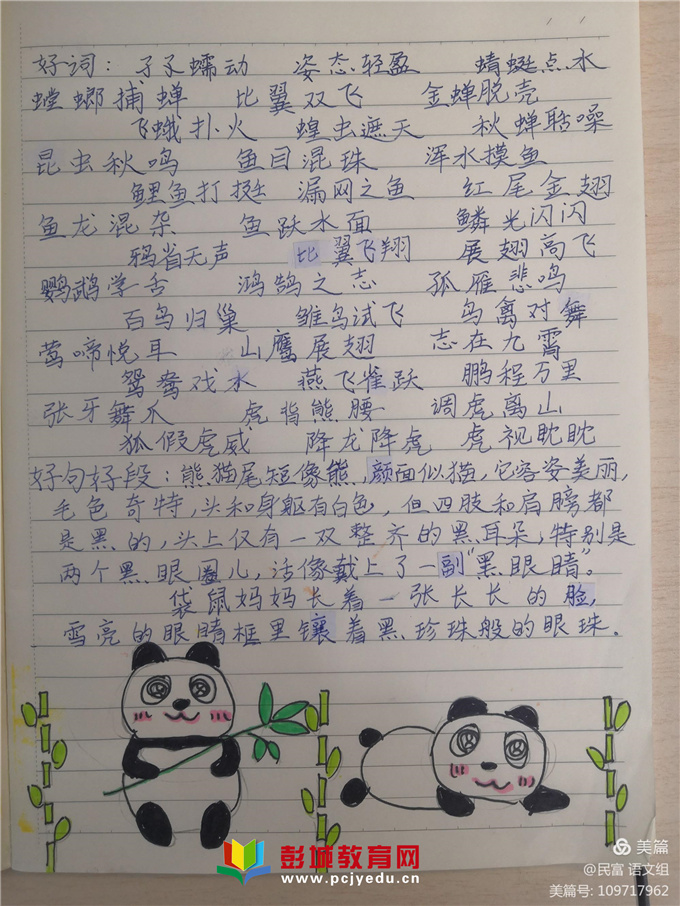 好词：孑孓蠕动 姿态轻盈 蜻蜓点水
螳螂捕蝉 比翼双飞 金蝉脱壳
飞蛾扑火 蝗虫遮天 秋蝉聒噪
昆虫秋鸣 鱼目混珠 浑水摸鱼
鲤鱼打挺 漏网之鱼 红尾金翅
鱼龙混杂 鱼跃水面 鳞光闪闪
鸦雀无声 比翼飞翔 展翅高飞
鹦鹉学舌 鸿鹄之志 孤雁悲鸣
百鸟归巢 雏鸟试飞 鸟禽对舞
莺啼悦耳 山鹰展翅 志在九霄
鸳鸯戏水 燕飞雀跃 鹏程万里
张牙舞爪 虎背熊腰 调虎离山
狐假虎威 降龙降虎 虎视眈眈
好句好段：熊猫尾短像熊，颜面似猫，它容姿美丽，
毛色奇特，头和身躯有白色，但四肢和肩膀都
是黑的，头上仅有一双整齐的黑耳朵，特别是
两个黑眼圈儿，活像戴上了一副“黑眼睛”。
袋鼠妈妈长着一张长长的脸，
雪亮的眼睛框里镶着黑珍珠般的眼珠．
彭城教育网
www.pcjyedu.cn
美篇
@民富 语文组
美篇号: 109717962